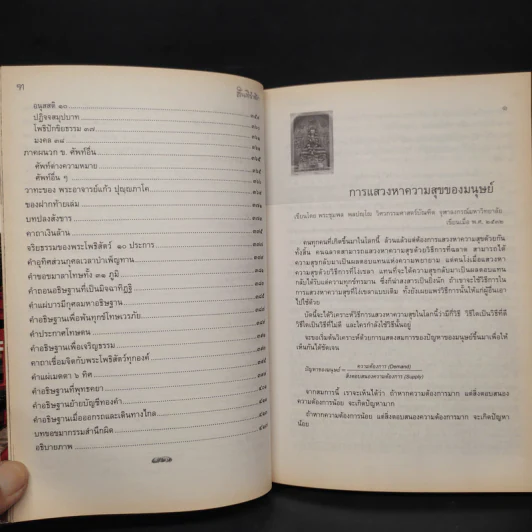 อนุสสติ ๑๐
ปฏิจจสมุปบาท
โพธิปักขิยธรรม ๓๗
มงคล ๓๘
ภาคผนวก ข. ศัพท์อื่น
ศัพท์ต่างความหมาย
ศัพท์อื่น ๆ
วาทะของ พระอาจารย์แก้ว ปุญฺญภาโค
ของฝากท้ายเล่ม
บทปลงสังขาร
คาถาเงินล้าน
จริยธรรมของพระโพธิสัตว์ ๑๐ ประการ
คำอุทิศส่วนกุศลเวลาบำเพ็ญทาน
คำขอขมาลาโทษทั้ง ๓๑ ภูมิ
คำถอนอธิษฐานที่เป็นมิจฉาทิฏฐิ
คำแผ่บารมีกุศลมหาอธิษฐาน
คำอธิษฐานเพื่อพ้นทุกข์โทษเวรภัย
คำประกาศโทษตน
คำอธิษฐานเพื่อเจริญธรรม
คาถาเชื่อมจิตกับพระโพธิสัตว์ทุกองค์
คำแผ่เมตตา ๖ ทิศ
คำอธิษฐานที่พุทธคยา
คำอธิษฐานย้ายบัญชีทองคำ
คำอธิษฐานเมื่อออกรถและเดินทางไกล
บทขอขมากรรมสำนึกผิด
อธิบายภาพ
๑
การแสวงหาความสุขของมนุษย์
คนทุกคนที่เกิดขึ้นมาในโลกนี้ ล้วนแล้วแต่ต้องการแสวงหาความสุขด้วยกัน
ทั้งสิ้น คนฉลาดสามารถแสวงหาความสุขด้วยวิธีการที่ฉลาด สามารถได้
ความสุขกลับมาเป็นผลตอบแทนแห่งความพยายาม แต่คนโง่เมื่อแสวงหา
ความสุขด้วยวิธีการที่โง่เขลา แทนที่จะได้ความสุขกลับมาเป็นผลตอบแทน
กลับได้รับแต่ความทุกข์ทรมาน ซึ่งน่าสงสารเป็นยิ่งนัก ถ้าเราจะใช้วิธีการ
ในการแสวงหาความสุขที่โง่เขลาแบบเดิม ทั้งยังเผยแพร่วิธีการนั้นให้แก่ผู้อื่นเอา
ไปใช้ด้วย
บัดนี้จะได้วิเคราะห์วิธีการแสวงหาความสุขในโลกนี้ว่ามีกี่วิธี วิธีใดเป็นวิธีที่ดี
วิธีใดเป็นวิธีที่ไม่ดี และใครกำลังใช้วิธีนั้นอยู่
จะขอเริ่มต้นวิเคราะห์ด้วยการแสดงสมการของปัญหาของมนุษย์ขึ้นมาเพื่อให้
เห็นกันได้ชัดเจน
ปัญหาของมนุษย์ = ความต้องการ (Demand)
สิ่งตอบสนองความต้องการ (Supply)
จากสมการนี้ เราจะเห็นได้ว่า ถ้าหากความต้องการมาก แต่สิ่งตอบสนอง
ความต้องการน้อย จะเกิดปัญหามาก
ถ้าหากความต้องการน้อย แต่สิ่งตอบสนองความต้องการมาก จะเกิดปัญหา
น้อย